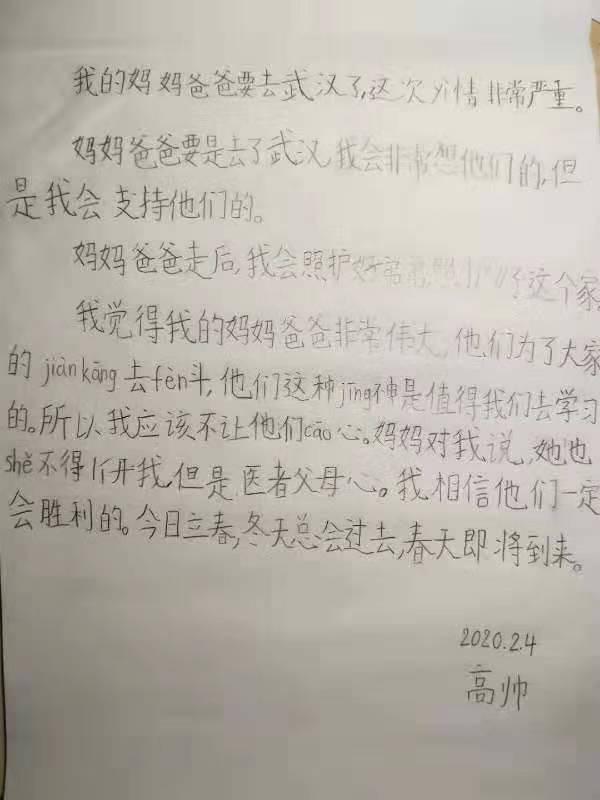 我的妈妈爸爸要去武汉了,这次疫情非常严重。
妈妈爸爸要是去了武汉,我会非常想他们的,但
是我会支持他们的。
妈妈爸爸走后,我会照护好爷爷,照护好这个家。
我觉得我的妈妈爸爸非常伟大,他们为了大家
的jiànkāng去fèn斗,他们这种jīng神是值得我们去学习
的。所以,我应该不让他们cāo心。妈妈对我说,她也
shě不得离开我,但是,医者父母心。我相信他们一定
会胜利的。今日立春,冬天总会过去,春天即将到来。
2020.2.4
高帅